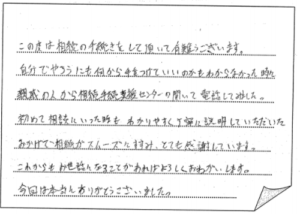 この度は相続の手続きをして頂いて有難うございます。
自分でやろうにも何から手をつけていいのかもわからなかった時に
親戚の人から相続手続支援センターの聞いて電話してみました。
初めて相談にいった時も わかりやすく丁寧に説明していただいた
おかげで相続がスムーズにすすみ、とても感謝しています。
これからも お世話になることがあればよろしくおねがいします。
今回は本当にありがとうございました。